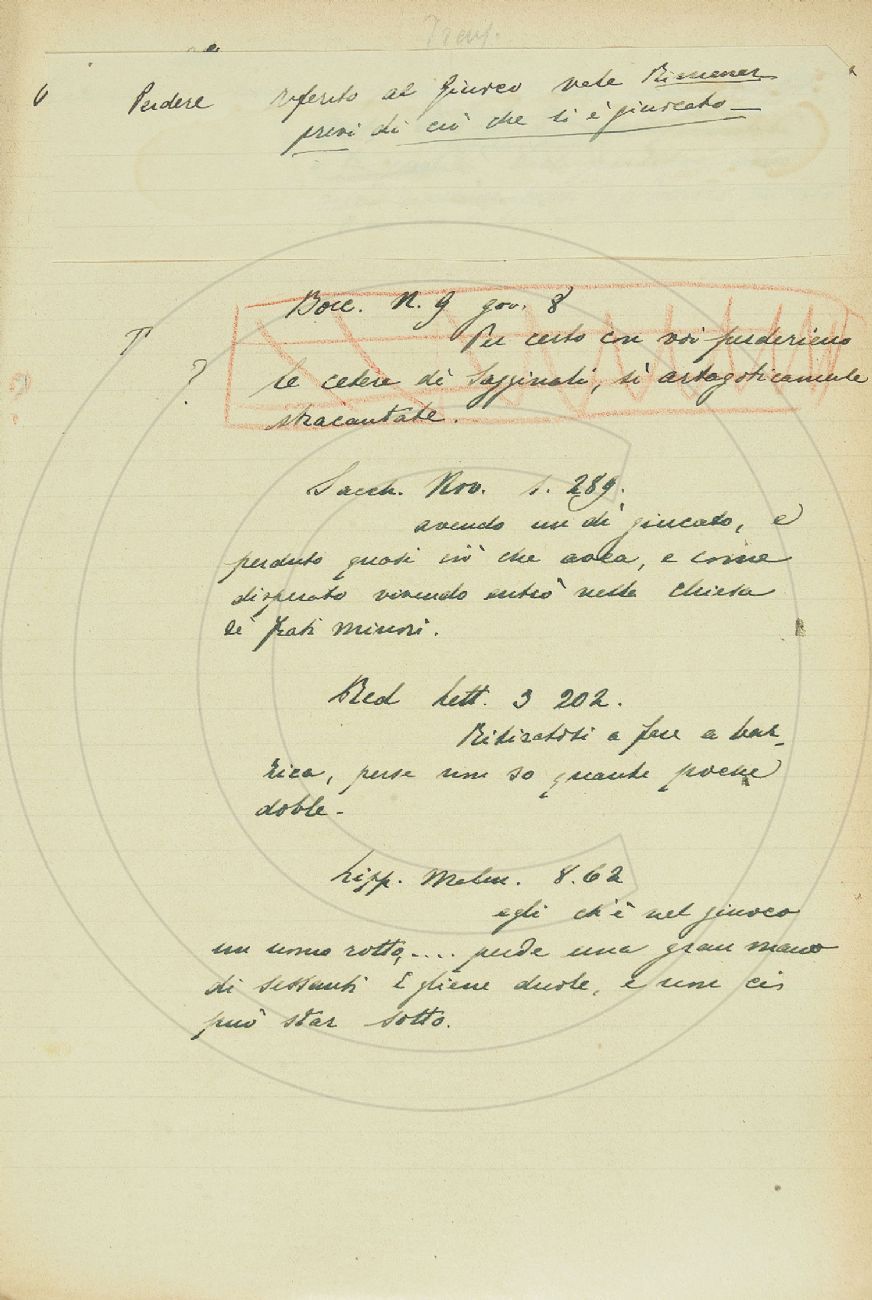 Trans.
Perdere riferito al Giuoco vale Rimaner
privi di ciò che si è giuocato —
Bocc. N. 9 gov. 8
T Per certo con voi perderieno
? le cetere de' Sagginali, sì artagoticamente
stracantate.
Sacch. Nov. 1. 289.
avendo un dì giucato, e
perduto quasi ciò che avea, e come
disperato vivendo entrò nella chiesa
de' Frati minori.
Red Lett. 3 202.
Ritiratosi a fare a bar-
rica, perse non so quante poche
doble.
Lipp. Malm. 8.62
egli ch'è nel giuoco
un uomo rotto, .... perde una gran mano
di sessanti E gliene duole, e non ci
può star sotto.